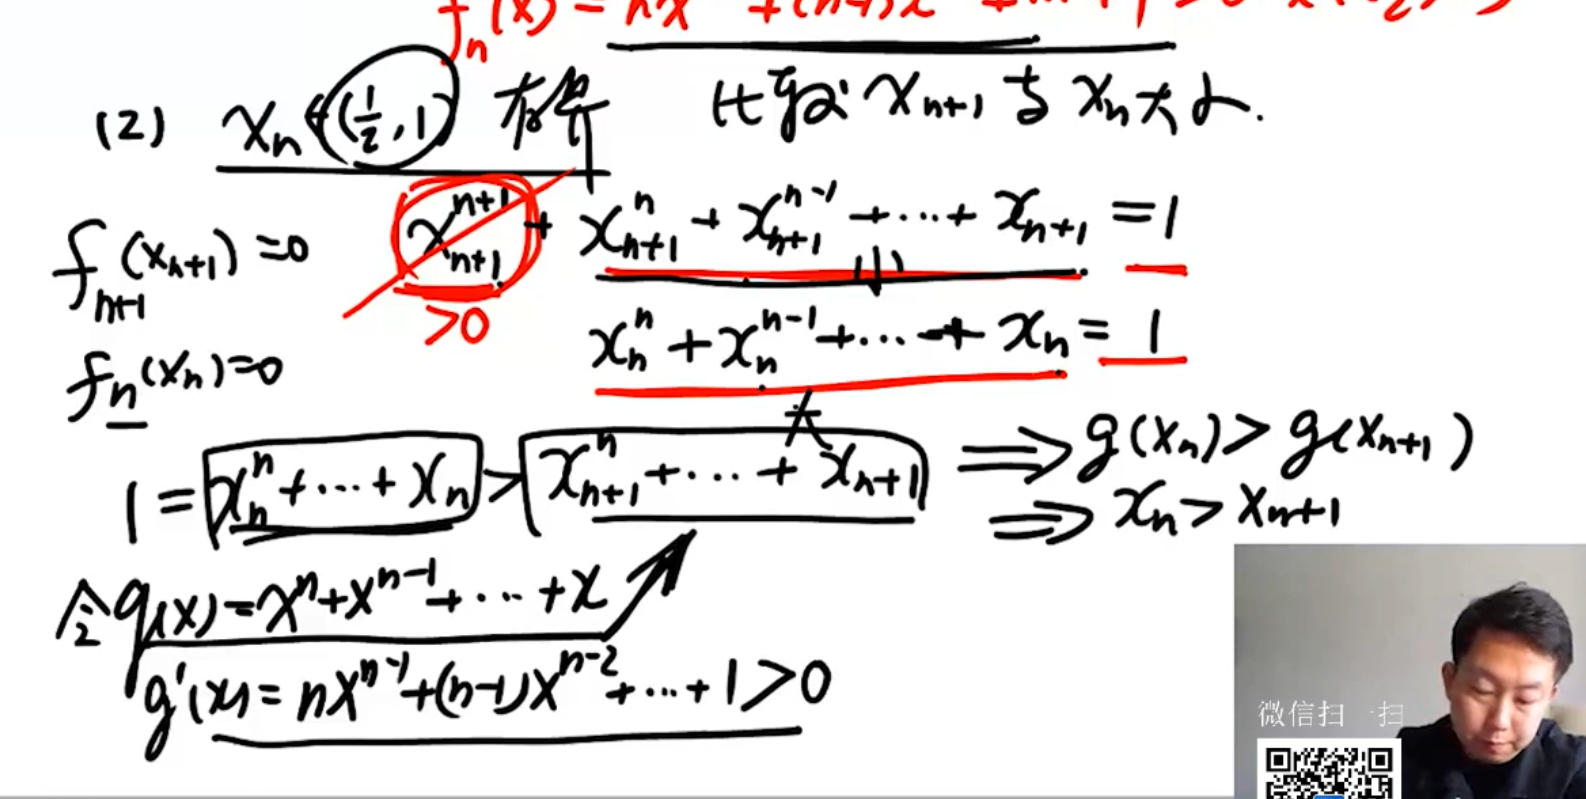 (2) xₙ∈(1/2, 1) 有界 比较 xₙ₊₁ 与 xₙ 大小.
fₙ₊₁(xₙ₊₁)=0 xₙ₊₁ⁿ⁺¹ + xₙ₊₁ⁿ + xₙ₊₁ⁿ⁻¹ +⋯+ xₙ₊₁ = 1
>0 小
fₙ(xₙ)=0 xₙⁿ + xₙⁿ⁻¹ +⋯+ xₙ = 1
大
1 = xₙⁿ +⋯+ xₙ > xₙ₊₁ⁿ +⋯+ xₙ₊₁ ⟹ g(xₙ) > g(xₙ₊₁)
⟹ xₙ > xₙ₊₁
令 g(x) = xⁿ + xⁿ⁻¹ +⋯+ x
g'(x) = nxⁿ⁻¹ + (n-1)xⁿ⁻² +⋯+ 1 > 0
微信扫一扫